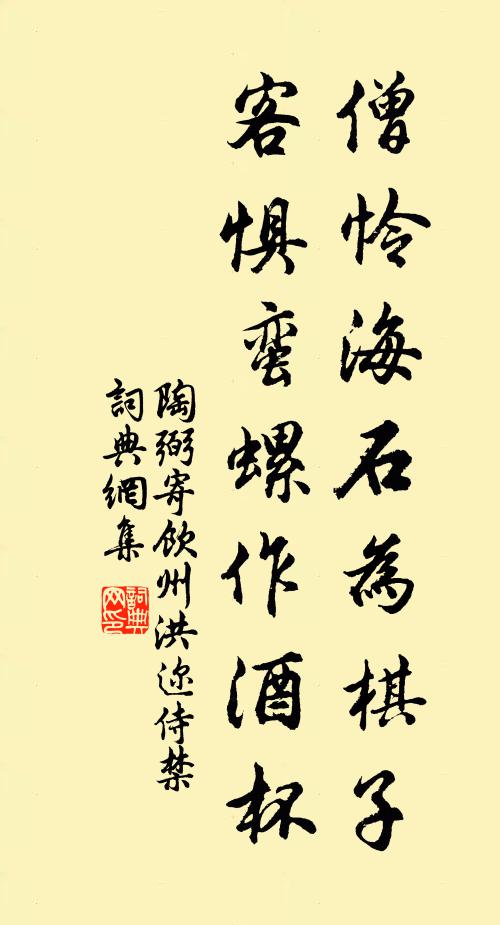 僧怜海石為棋子
客惧蛮螺作酒杯
陶弼寄钦州洪迩侍禁
詞典網集
詞典
网印